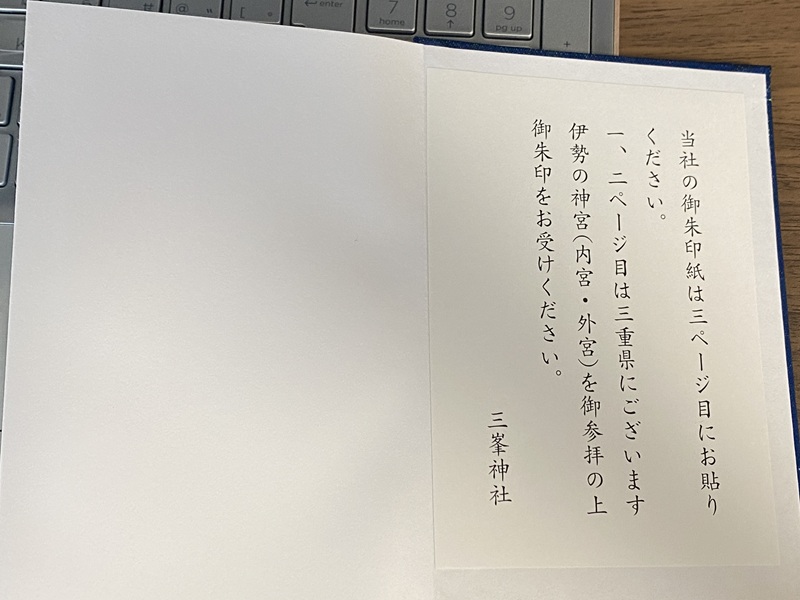 当社の御朱印紙は三ページ目にお貼り
ください。
一、二ページ目は三重県にございます
伊勢の神宮(内宮・外宮)を御参拝の上
御朱印をお受けください。
三峯神社
@
[
enter
7
home
8
9
pg up
+